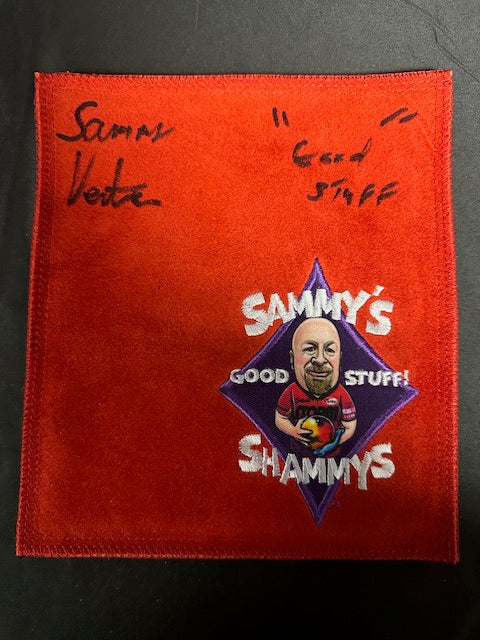 Sammy
" "
Good
STUFF
SAMMY'S
GOOD STUFF!
SHAMMYS